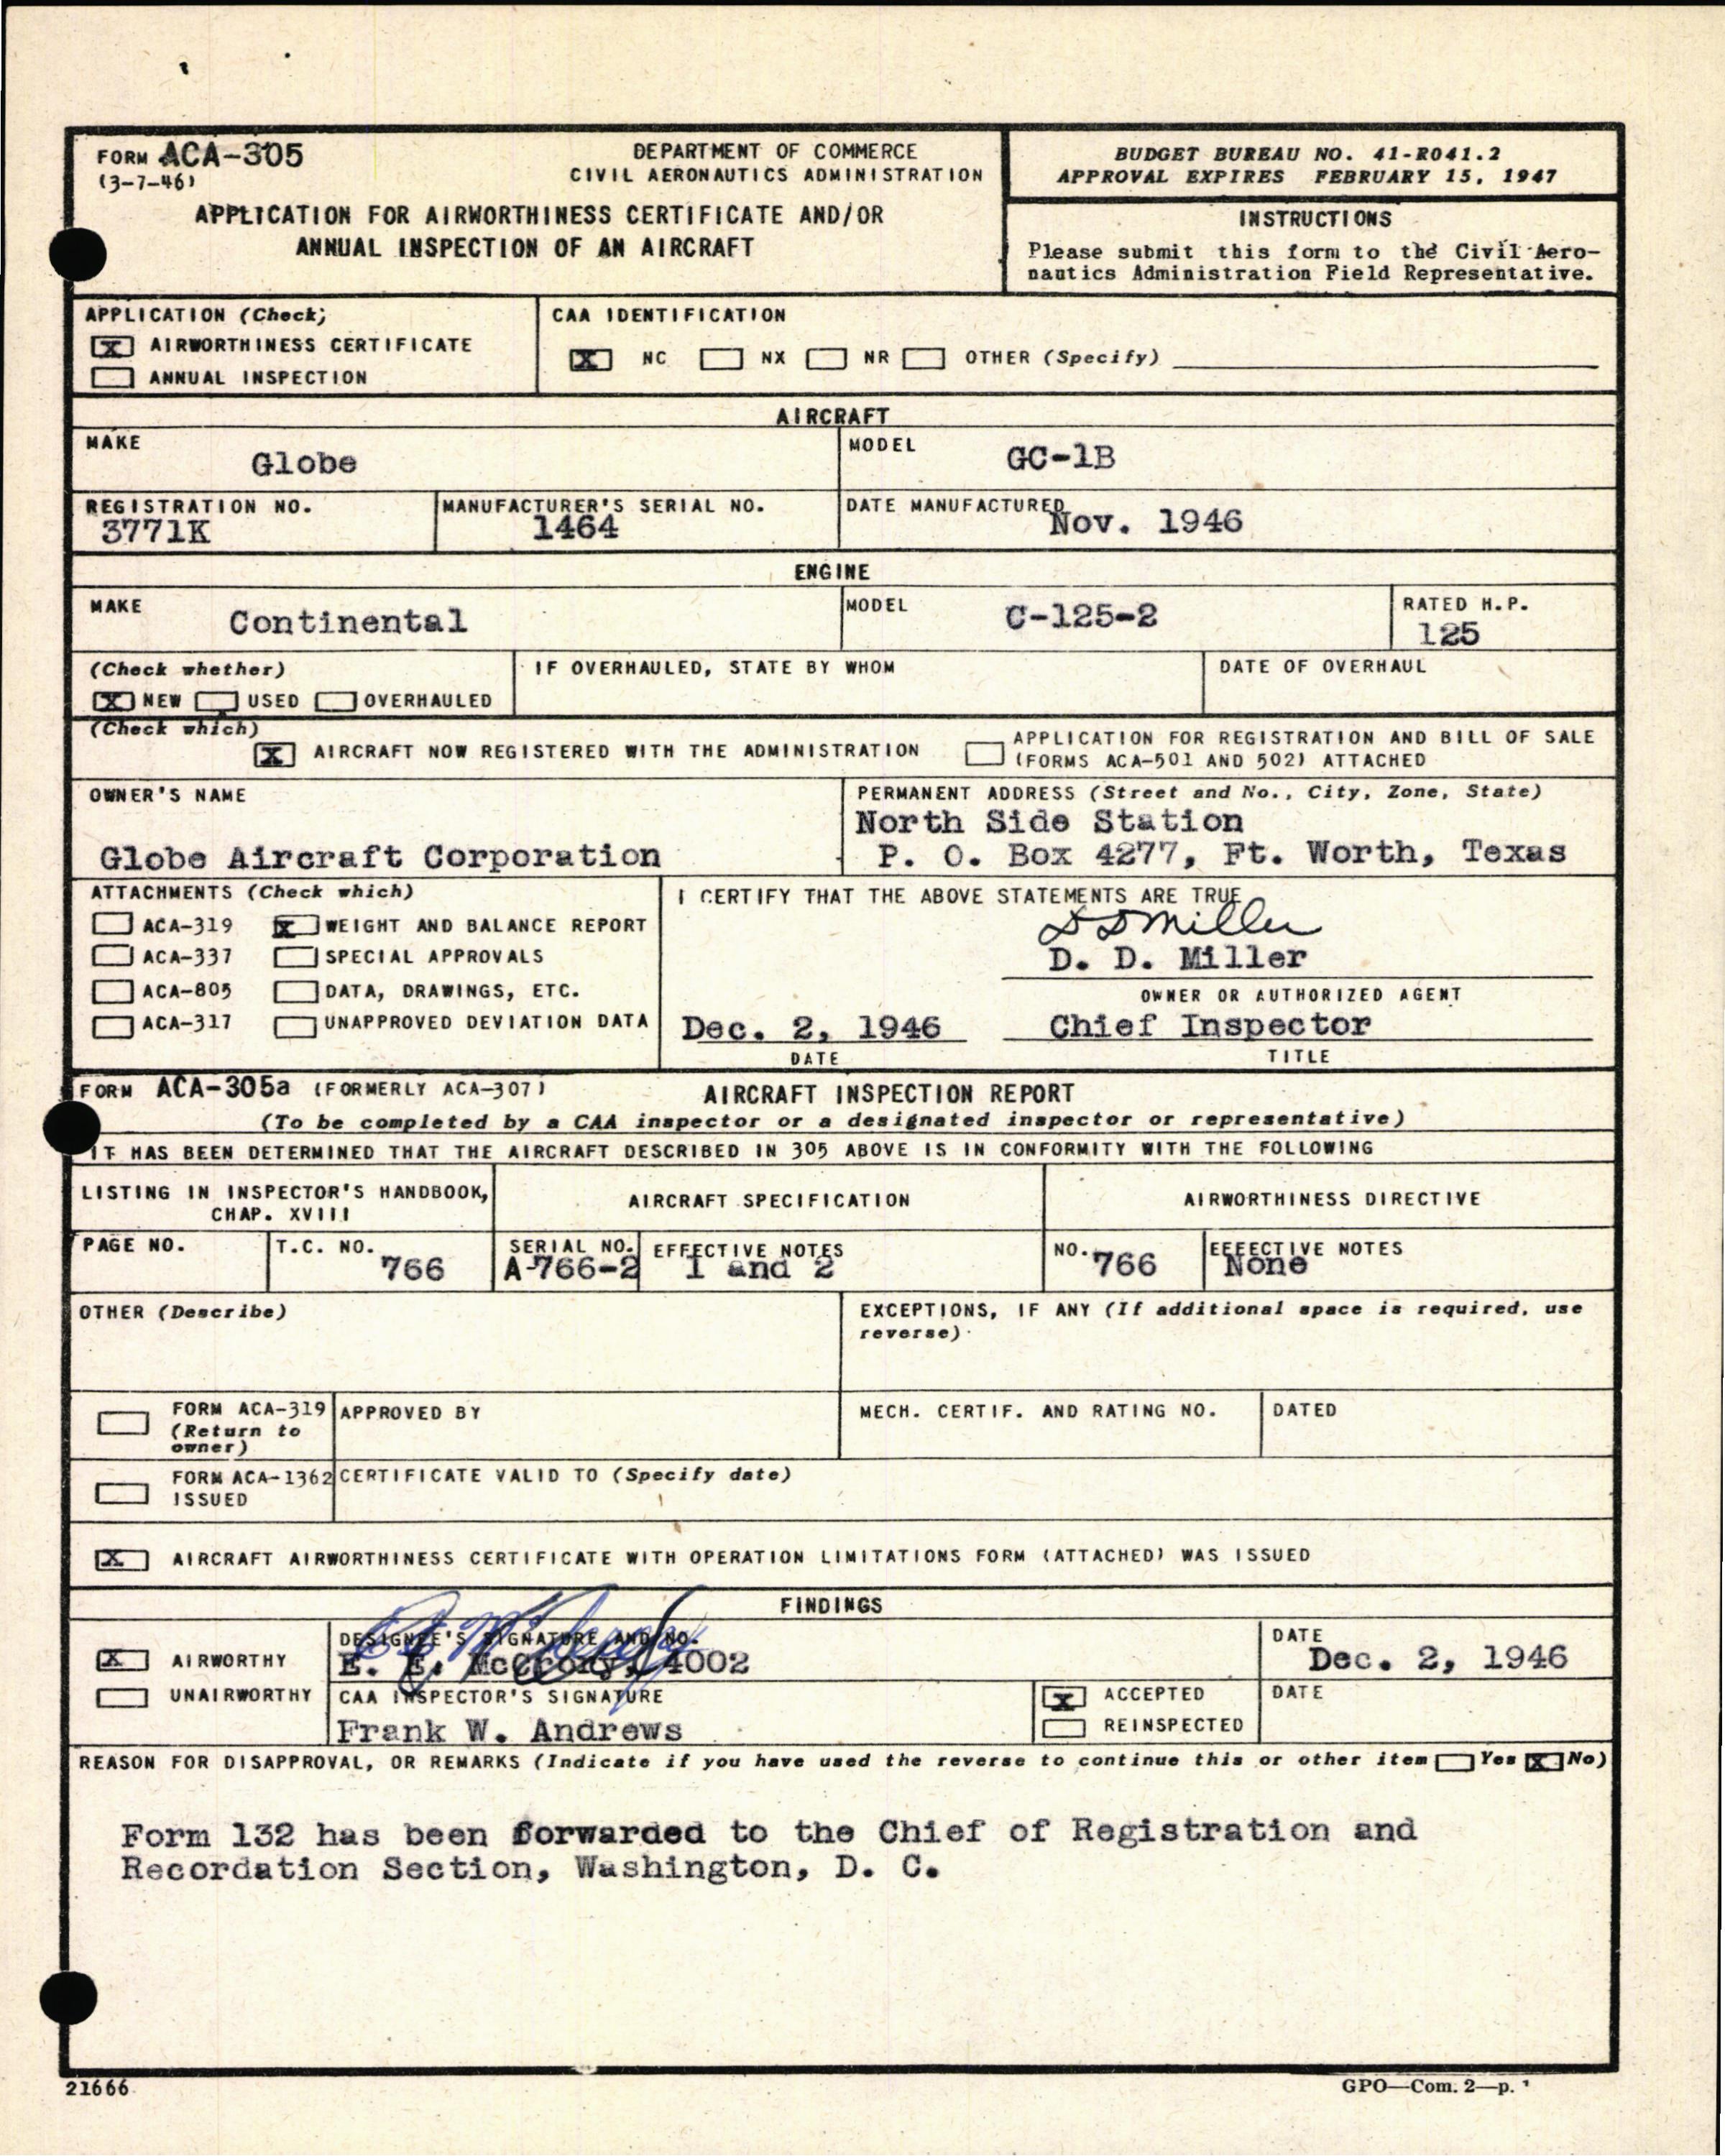 FORM ACA-305
(3-7-46)
DEPARTMENT OF COMMERCE
CIVIL AERONAUTICS ADMINISTRATION
APPLICATION FOR AIRWORTHINESS CERTIFICATE AND/OR
ANNUAL INSPECTION OF AN AIRCRAFT
BUDGET BUREAU NO. 41-R041.2
APPROVAL EXPIRES FEBRUARY 15, 1947
INSTRUCTIONS
Please submit this form to the Civil Aero-
nautics Administration Field Representative.
APPLICATION (Check)
X AIRWORTHINESS CERTIFICATE
ANNUAL INSPECTION
CAA IDENTIFICATION
X NC NX NR OTHER (Specify)
AIRCRAFT
MAKE
Globe
MODEL
GC-1B
REGISTRATION NO.
3771K
MANUFACTURER'S SERIAL NO.
1464
DATE MANUFACTURED
Nov. 1946
ENGINE
MAKE
Continental
MODEL
C-125-2
RATED H.P.
125
(Check whether)
X NEW USED OVERHAULED
IF OVERHAULED, STATE BY WHOM
DATE OF OVERHAUL
(Check which)
X AIRCRAFT NOW REGISTERED WITH THE ADMINISTRATION
APPLICATION FOR REGISTRATION AND BILL OF SALE
(FORMS ACA-501 AND 502) ATTACHED
OWNER'S NAME
Globe Aircraft Corporation
PERMANENT ADDRESS (Street and No., City, Zone, State)
North Side Station
P. O. Box 4277, Ft. Worth, Texas
ATTACHMENTS (Check which)
ACA-319 X WEIGHT AND BALANCE REPORT
ACA-337 SPECIAL APPROVALS
ACA-805 DATA, DRAWINGS, ETC.
ACA-317 UNAPPROVED DEVIATION DATA
I CERTIFY THAT THE ABOVE STATEMENTS ARE TRUE
D D Miller
D. D. Miller
OWNER OR AUTHORIZED AGENT
Dec. 2, 1946 Chief Inspector
DATE TITLE
FORM ACA-305a (FORMERLY ACA-307) AIRCRAFT INSPECTION REPORT
(To be completed by a CAA inspector or a designated inspector or representative)
IT HAS BEEN DETERMINED THAT THE AIRCRAFT DESCRIBED IN 305 ABOVE IS IN CONFORMITY WITH THE FOLLOWING
LISTING IN INSPECTOR'S HANDBOOK,
CHAP. XVIII
AIRCRAFT SPECIFICATION
AIRWORTHINESS DIRECTIVE
PAGE NO.
T.C. NO.
766
SERIAL NO.
A-766-2
EFFECTIVE NOTES
1 and 2
NO.
766
EFFECTIVE NOTES
None
OTHER (Describe)
EXCEPTIONS, IF ANY (If additional space is required, use
reverse)
FORM ACA-319
(Return to
owner)
APPROVED BY
MECH. CERTIF. AND RATING NO.
DATED
FORM ACA-1362
ISSUED
CERTIFICATE VALID TO (Specify date)
X AIRCRAFT AIRWORTHINESS CERTIFICATE WITH OPERATION LIMITATIONS FORM (ATTACHED) WAS ISSUED
FINDINGS
X AIRWORTHY
UNAIRWORTHY
DESIGNEE'S SIGNATURE AND NO.
E. E. McCrory, 4002
DATE
Dec. 2, 1946
CAA INSPECTOR'S SIGNATURE
Frank W. Andrews
X ACCEPTED
REINSPECTED
DATE
REASON FOR DISAPPROVAL, OR REMARKS (Indicate if you have used the reverse to continue this or other item Yes X No)
Form 132 has been forwarded to the Chief of Registration and
Recordation Section, Washington, D. C.
21666
GPO—Com. 2—p.